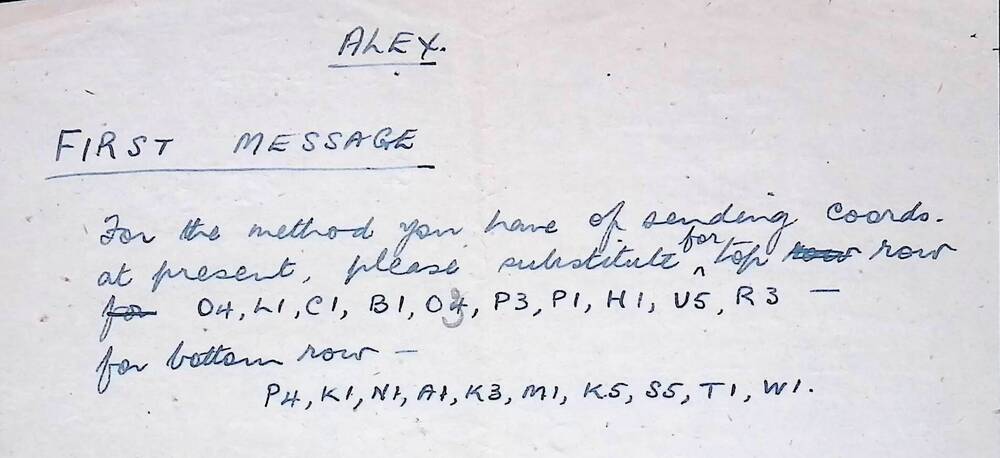 ALEX.
FIRST MESSAGE
For the method you have of sending coords.
at present, please substitute for top row row
for O4, L1, C1, B1, O3, P3, P1, H1, U5, R3 —
for bottom row —
P4, K1, N1, A1, K3, M1, K5, S5, T1, W1.